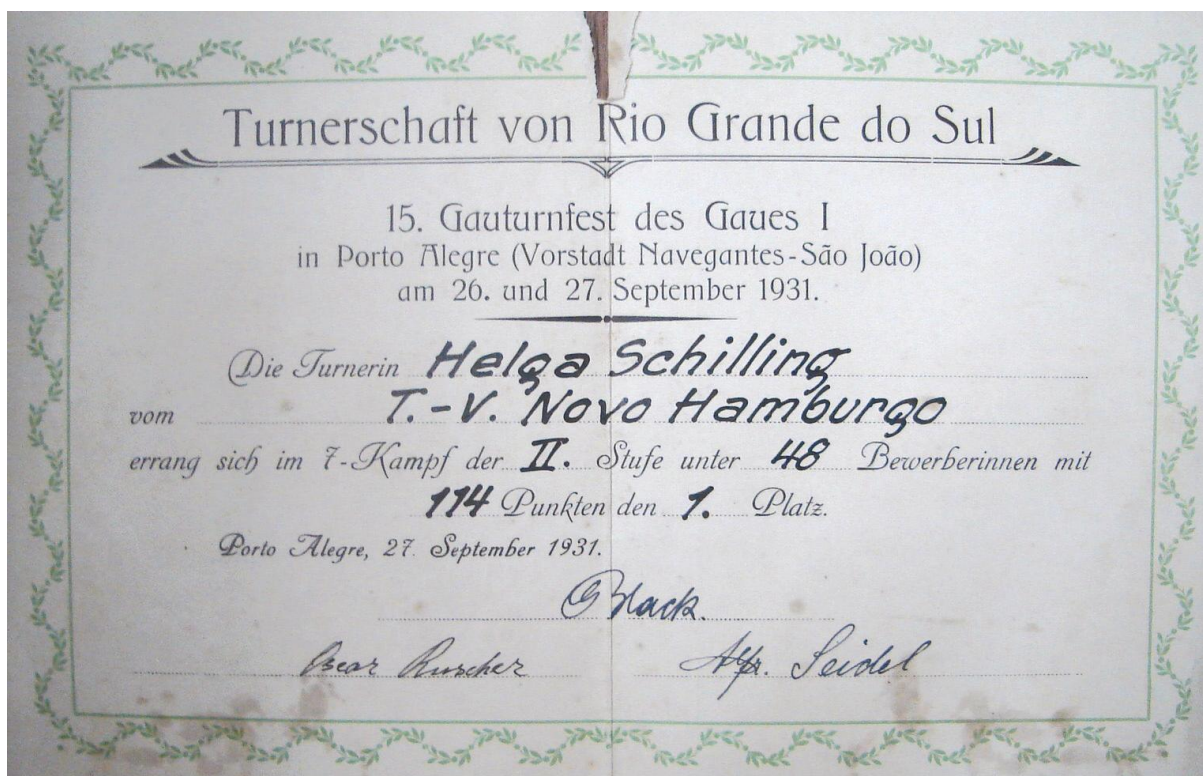 Turnerschaft von Rio Grande do Sul
15. Gauturnfest des Gaues I
in Porto Alegre (Vorstadt Navegantes-São João)
am 26. und 27. September 1931.
Die Turnerin Helga Schilling
vom T.-V. Novo Hamburgo
errang sich im 7-Kampf der II. Stufe unter 48 Bewerberinnen mit
114 Punkten den 1. Platz.
Porto Alegre, 27. September 1931.
Black.
Alfr. Seidel